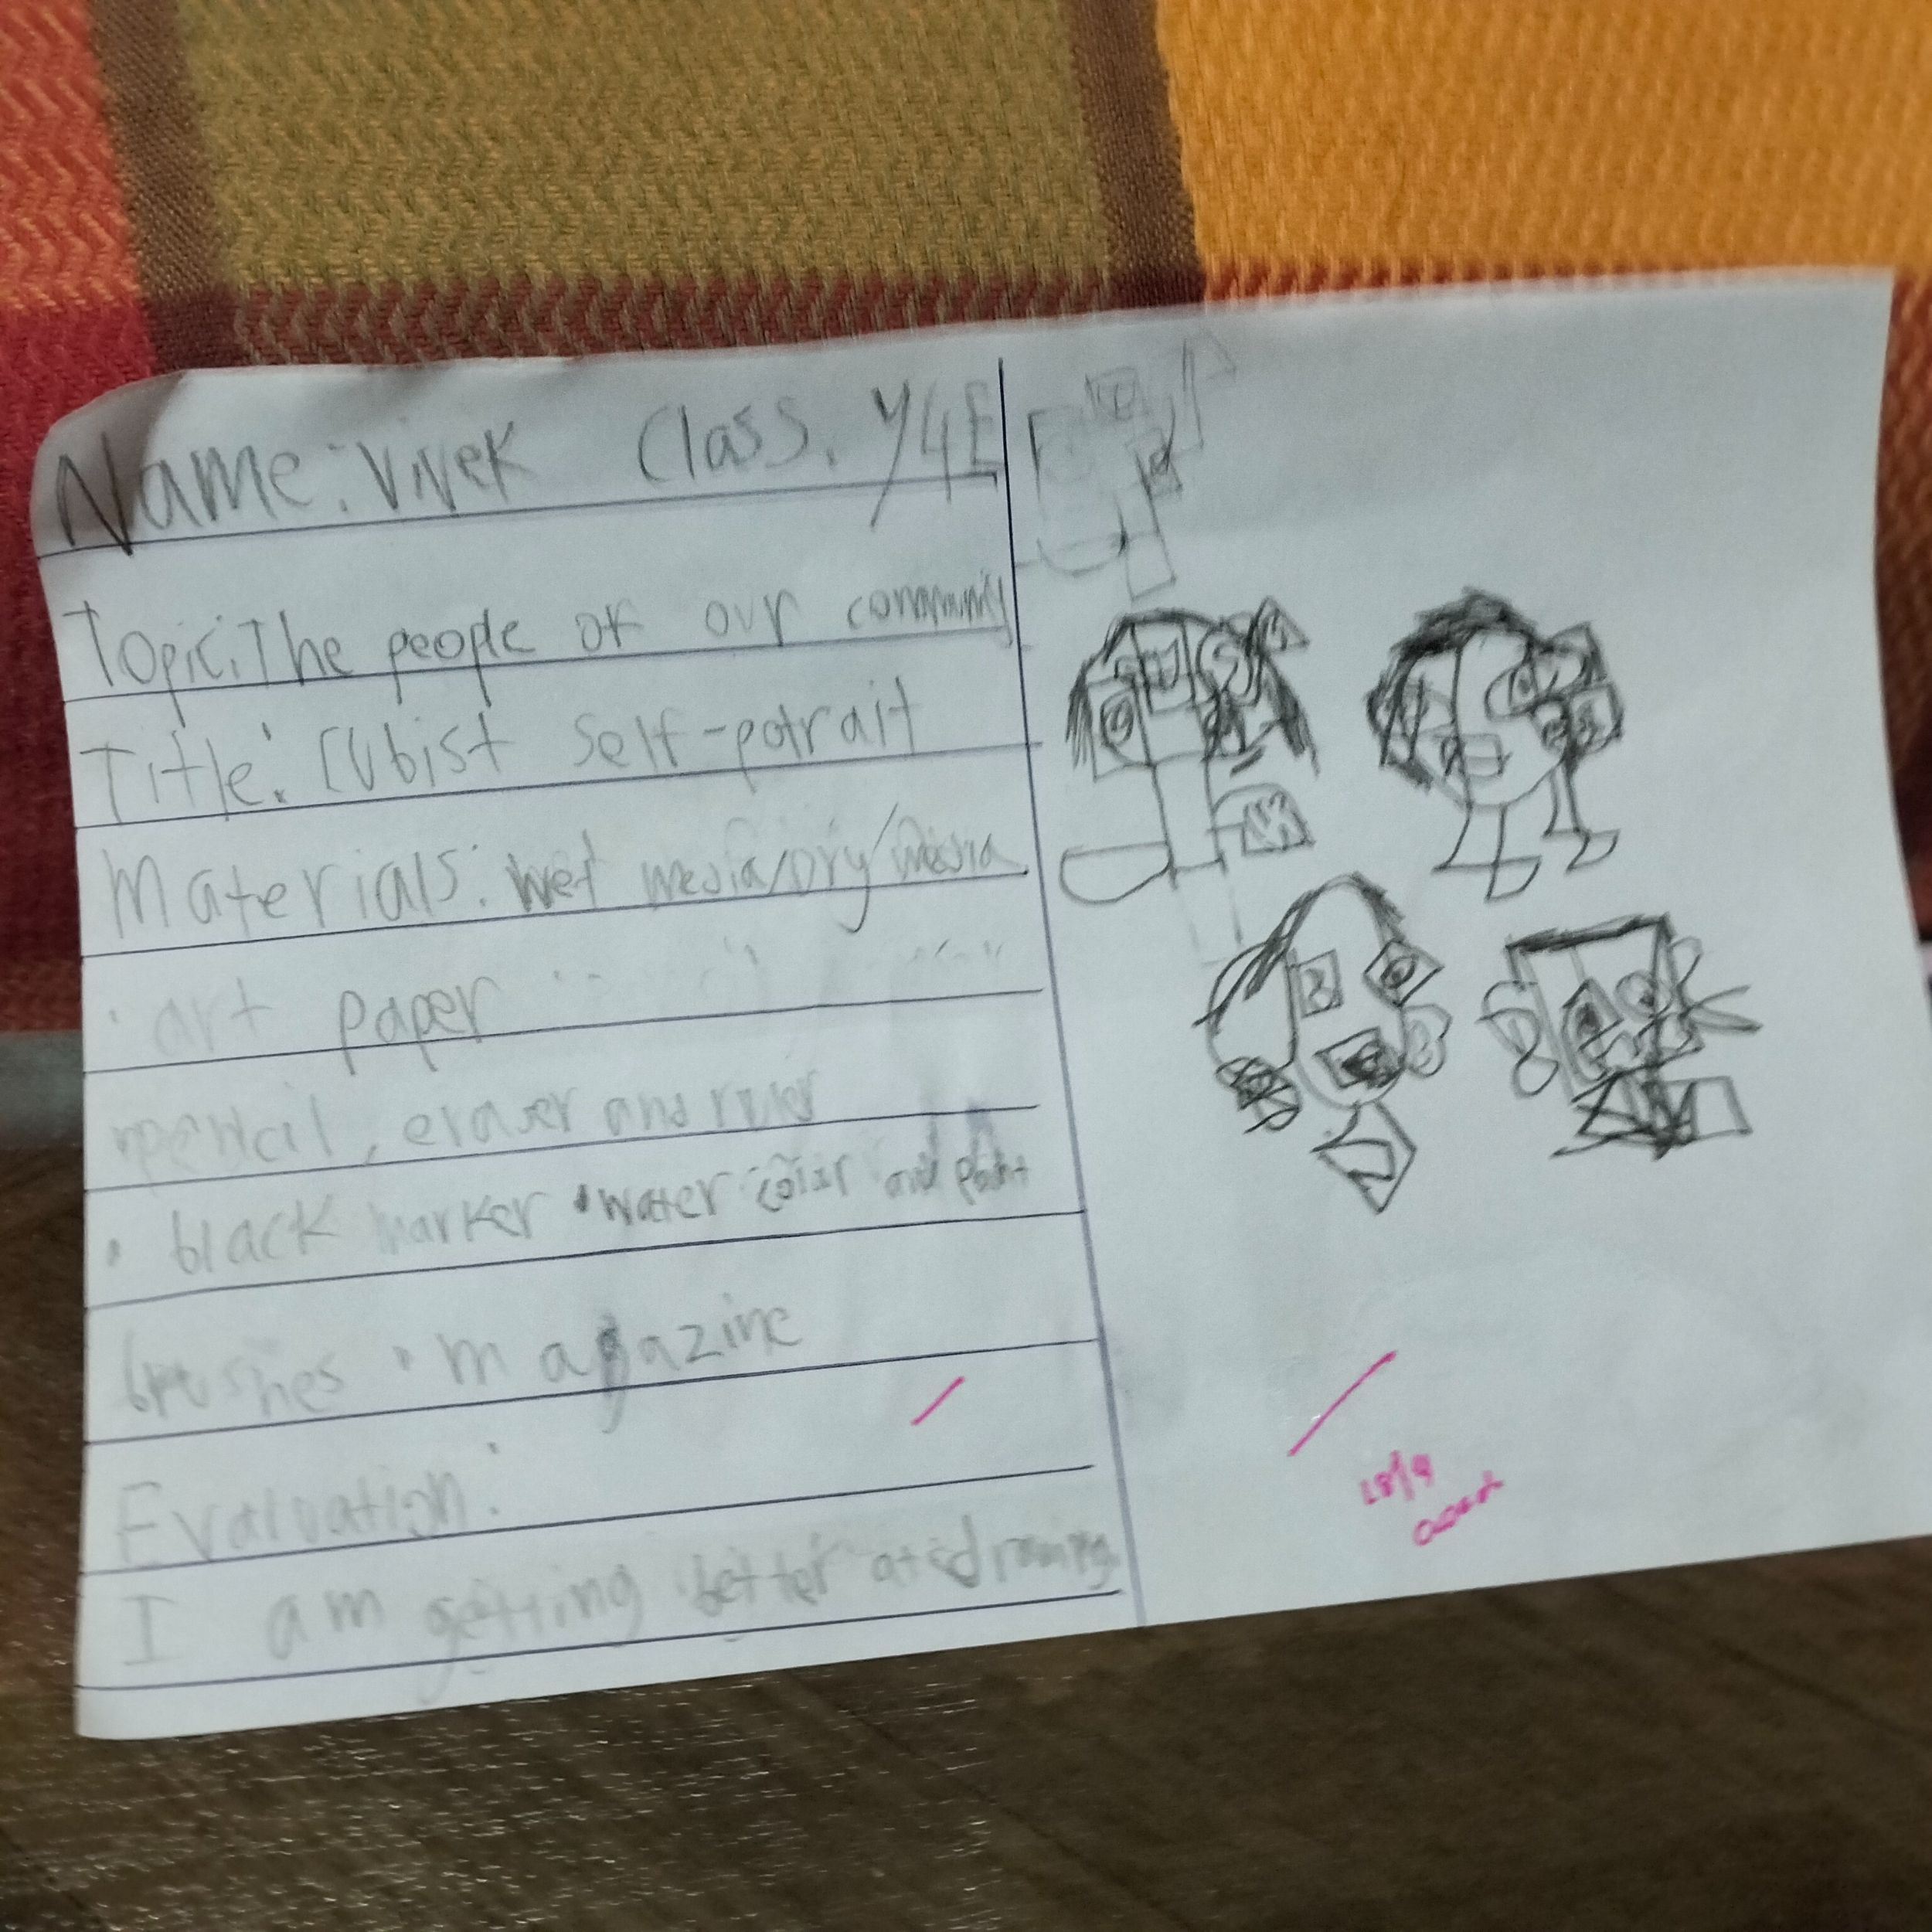 Name: Vivek Class. Y4E
Topic: The people of our community
Title: Cubist self-potrait
Materials: wet media/Dry/media
• art paper
pencil, eraser and ruler
• black marker • water color and paint
brushes • magazine
Evaluation:
I am getting better at drawing
18/9